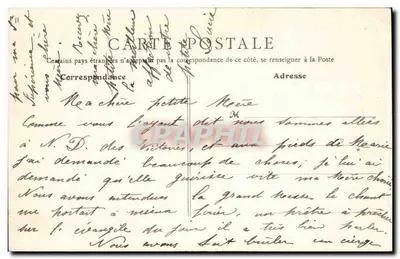 CARTE POSTALE
Certains pays étrangers n'acceptent pas la correspondance de ce côté, se renseigner à la Poste
Correspondance
Adresse
Ma chère petite Mère
Comme vous l'ayant dit nous sommes allées
à N. D. des et aux pieds de Marie
j'ai demandé beaucoup de choses, je lui ai
demandé qu'elle guérisse vite ma Mère chérie
Nous avons entendues la grand Messe le chant
me portait à mieux prier, un prêtre a prêcher
sur l'évangile du jour il a très bien parler.
Nous avons fait brûler un cierge
pour ma
Supérieure et
vous chère
Mère.
Recevez
ma chère
petite Mère
la meilleur
affection
de votre
petite